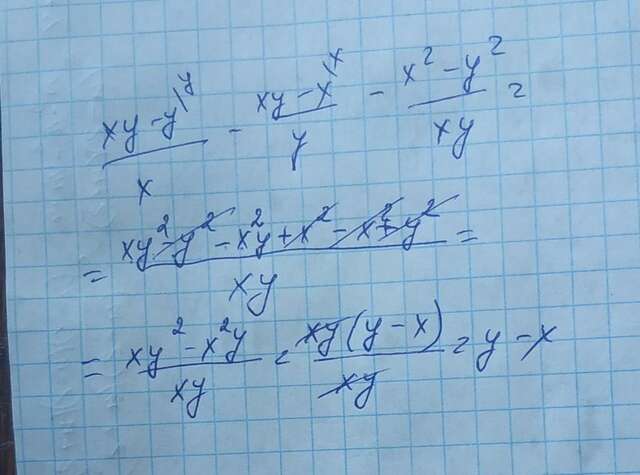 (xy - y)/x \y - (xy - x)/y \x - (x² - y²)/(xy) =
= (xy² - y² - x²y + x² - x² + y²)/(xy) =
= (xy² - x²y)/(xy) = (xy(y - x))/(xy) = y - x